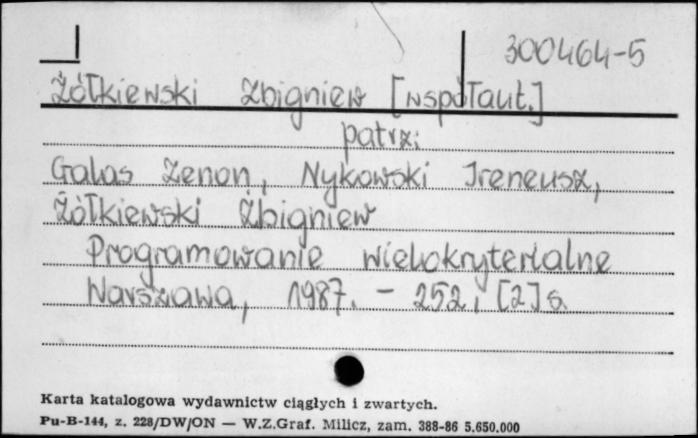 300464-5
Żółkiewski Zbigniew [współaut.]
patrz:
Galas Zenon, Nykowski Ireneusz,
Żółkiewski Zbigniew
Programowanie wielokryterialne
Warszawa, 1987. - 252, [2] s.
Karta katalogowa wydawnictw ciągłych i zwartych.
Pu-B-144, z. 228/DW/ON — W.Z.Graf. Milicz, zam. 388-86 5.650.000